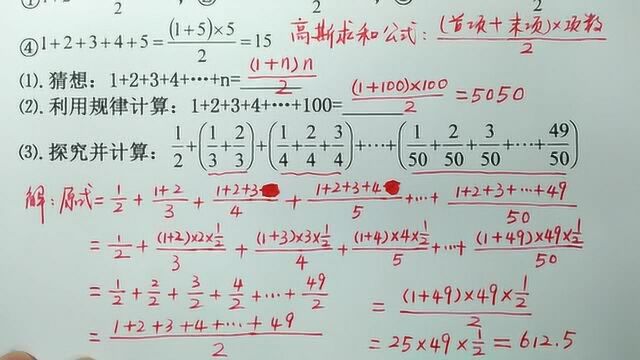 ①1+2= 2 ②
④1+2+3+4+5=(1+5)×5/2=15 高斯求和公式:(首项+末项)×项数/2
(1).猜想:1+2+3+4+⋯+n=(1+n)n/2
(2).利用规律计算:1+2+3+4+⋯+100=(1+100)×100/2=5050
(3).探究并计算:1/2+(1/3+2/3)+(1/4+2/4+3/4)+⋯+(1/50+2/50+3/50+⋯+49/50)
解:原式=1/2+(1+2)/3+(1+2+3)/4+(1+2+3+4)/5+⋯+(1+2+3+⋯+49)/50
=1/2+(1+2)×2×1/2/3+(1+3)×3×1/2/4+(1+4)×4×1/2/5+⋯+(1+49)×49×1/2/50
=1/2+2/2+3/2+4/2+⋯+49/2
=(1+2+3+4+⋯+49)/2
=(1+49)×49×1/2/2
=25×49×1/2=612.5